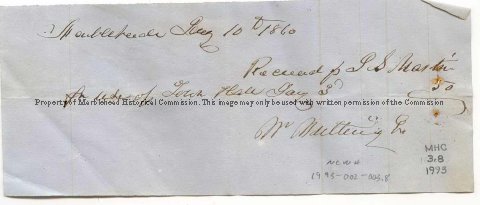 Marblehead Aug 10th 1860
Received of P S Martin
for use of Town Hall Aug 3d 50
Property of Marblehead Historical Commission. This image may only be used with written permission of the Commission.
Wm
MHC
3.8
1993
1993-002-003.8